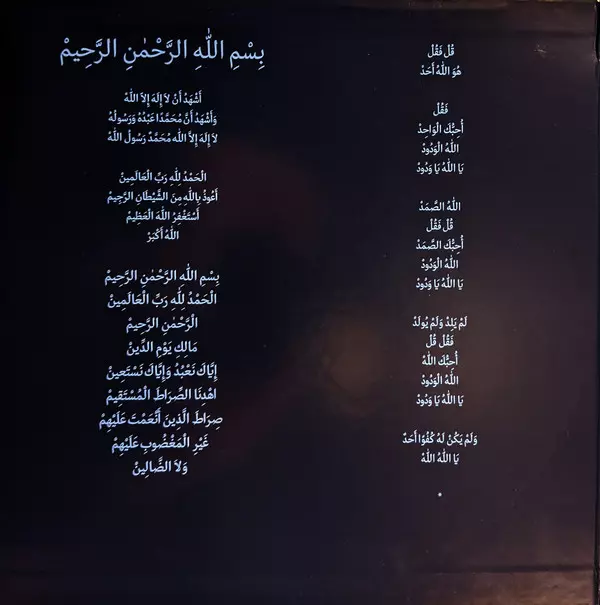 بِسْمِ اللّٰهِ الرَّحْمٰنِ الرَّحِيمْ
أَشْهَدُ أَنْ لاَ إِلَهَ إِلاَ اللّٰهُ
وَأَشْهَدُ أَنَّ مُحَمَّدًا عَبْدُهُ وَرَسُولُهُ
لاَ إِلَهَ إِلاَّ اللّٰه مُحَمَّدٌ رَسُولُ اللّٰهُ
الْحَمْدُ لِلّٰهِ رَبِّ الْعَالَمِينْ
أَعُوذُ بِاللّٰهِ مِنَ الشَّيْطَانِ الرَّجِيمْ
أَسْتَغْفِرُ اللّٰهَ الْعَظِيمْ
اللّٰهُ أَكْبَرْ
بِسْمِ اللّٰهِ الرَّحْمٰنِ الرَّحِيمْ
الْحَمْدُ لِلّٰهِ رَبِّ الْعَالَمِينْ
الْرَّحْمٰنِ الرَّحِيمْ
مَالِكِ يَوْمِ الدِّينْ
إِيَّاكَ نَعْبُدُ وَإِيَّاكَ نَسْتَعِينْ
اهْدِنَا الصِّرَاطَ الْمُسْتَقِيمْ
صِرَاطَ الَّذِينَ أَنْعَمْتَ عَلَيْهِمْ
غَيْرِ الْمَغْضُوبِ عَلَيْهِمْ
وَلاَ الضَّالِينْ
قُلْ فَقُلْ
هُوَ اللّٰهُ أَحَدْ
فَقُلْ
أُحِبُّكَ الْوَاحِدْ
اللّٰهُ الْوَدُودْ
يَا اللّٰهُ يَا وَدُودْ
اللّٰهُ الصَّمَدْ
قُلْ فَقُلْ
أُحِبُّكَ الصَّمَدْ
اللّٰهُ الْوَدُودْ
يَا اللّٰهُ يَا وَدُودْ
لَمْ يَلِدْ وَلَمْ يُولَدْ
فَقُلْ قُلْ
أُحِبُّكَ اللّٰهْ
اللّٰهُ الْوَدُودْ
يَا اللّٰهُ يَا وَدُودْ
وَلَمْ يَكُنْ لَهُ كُفُوًا أَحَدٌ
يَا اللّٰهُ اللّٰهْ